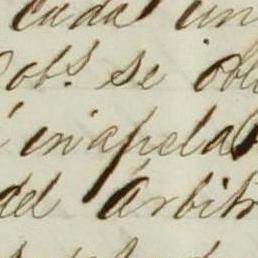 cada un
Pobs. se obl
é inapelab
del Arbitr